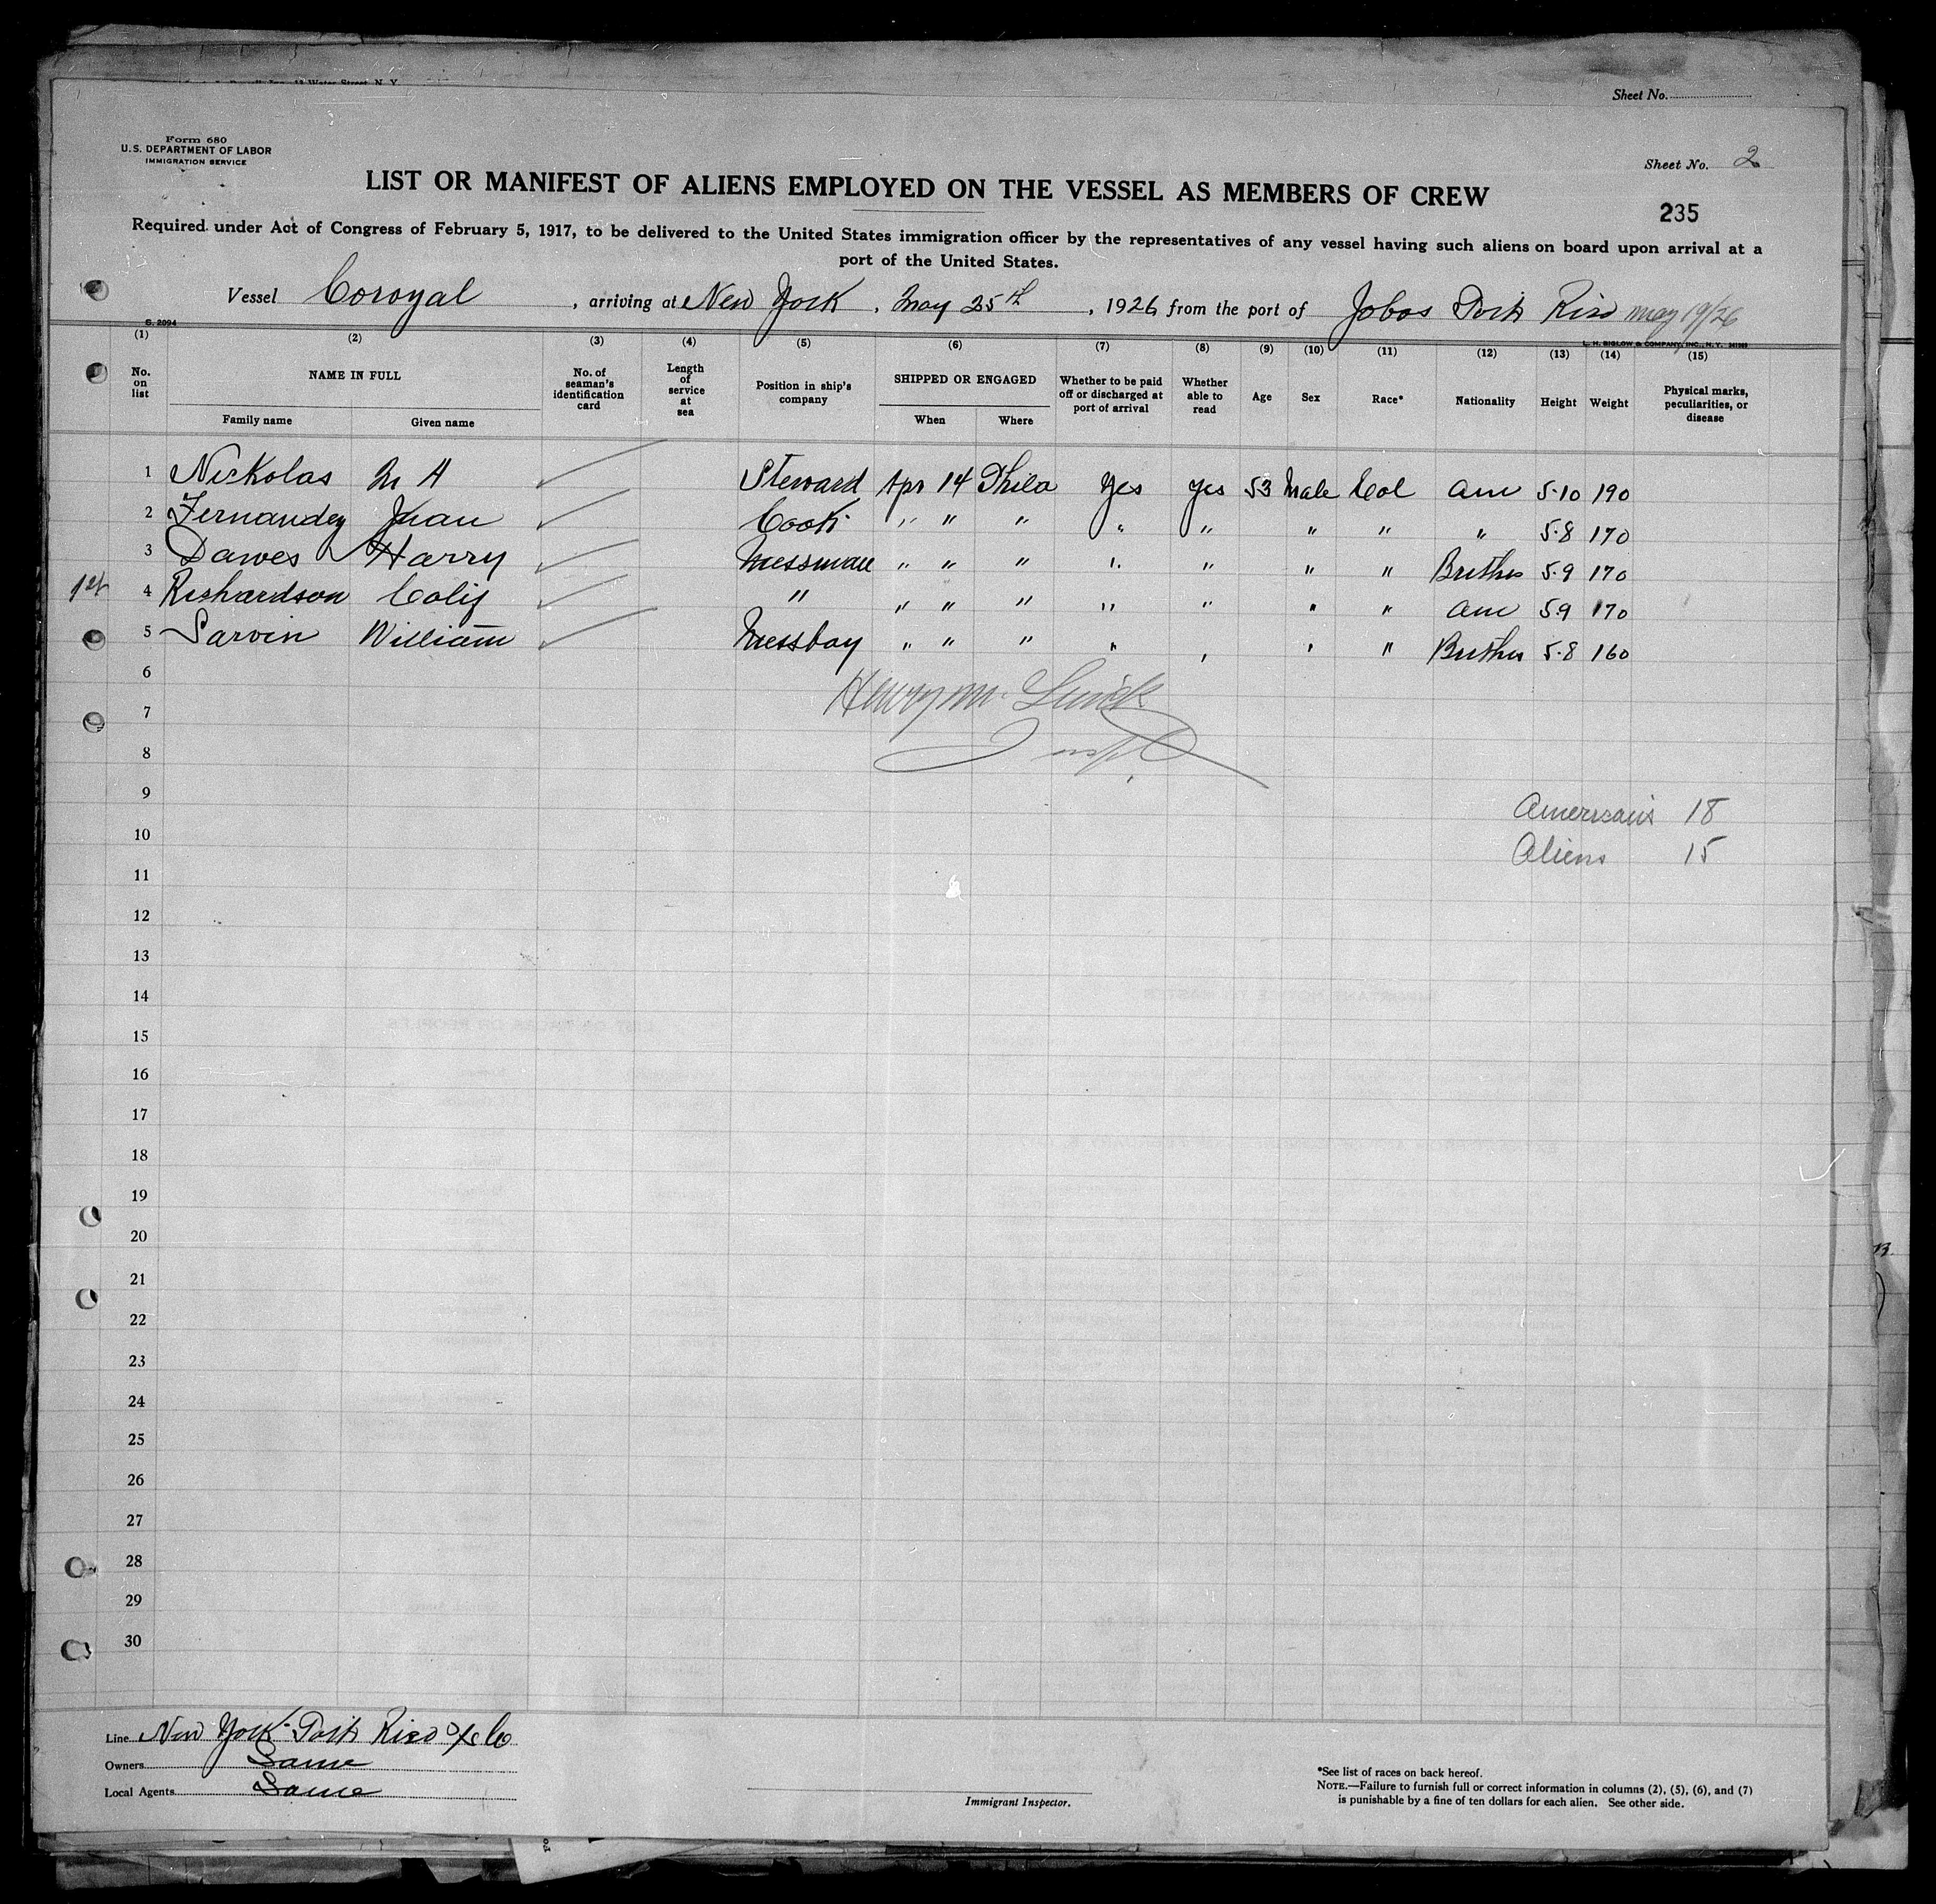 Sheet No.
Form 680
U.S. DEPARTMENT OF LABOR
IMMIGRATION SERVICE
Sheet No. 2
LIST OR MANIFEST OF ALIENS EMPLOYED ON THE VESSEL AS MEMBERS OF CREW
235
Required under Act of Congress of February 5, 1917, to be delivered to the United States immigration officer by the representatives of any vessel having such aliens on board upon arrival at a
port of the United States.
Vessel Coroyal, arriving at New York, May 25th, 1926 from the port of Jobos Porto Rico May 19/26
S. 2094
L. H. BIGLOW & COMPANY, INC., N.Y.
(1) (2) (3) (4) (5) (6) (7) (8) (9) (10) (11) (12) (13) (14) (15)
No. on list
NAME IN FULL
Family name
Given name
No. of seaman's identification card
Length of service at sea
Position in ship's company
SHIPPED OR ENGAGED
When
Where
Whether to be paid off or discharged at port of arrival
Whether able to read
Age
Sex
Race*
Nationality
Height
Weight
Physical marks, peculiarities, or disease
1 Nickolas M A Steward Apr 14 Phila Yes Yes 53 Male Col Am 5-10 190
2 Fernandez Juan Cook " " " " " " " " 5-8 170
3 Dawes Harry Messman " " " " " " " British 5-9 170
1st 4 Richardson " " " " " " " " Am 5-9 170
5 Sarvin William Messboy " " " " " " " British 5-8 160
6
Henry M.
7
8
Insp
9
Americans 18
10
Aliens 15
11
12
13
14
15
16
17
18
19
20
21
22
23
24
25
26
27
28
29
30
Line New York Porto Rico SS Co
Owners Same
Local Agents Same
Immigrant Inspector.
*See list of races on back hereof.
NOTE.—Failure to furnish full or correct information in columns (2), (5), (6), and (7)
is punishable by a fine of ten dollars for each alien. See other side.